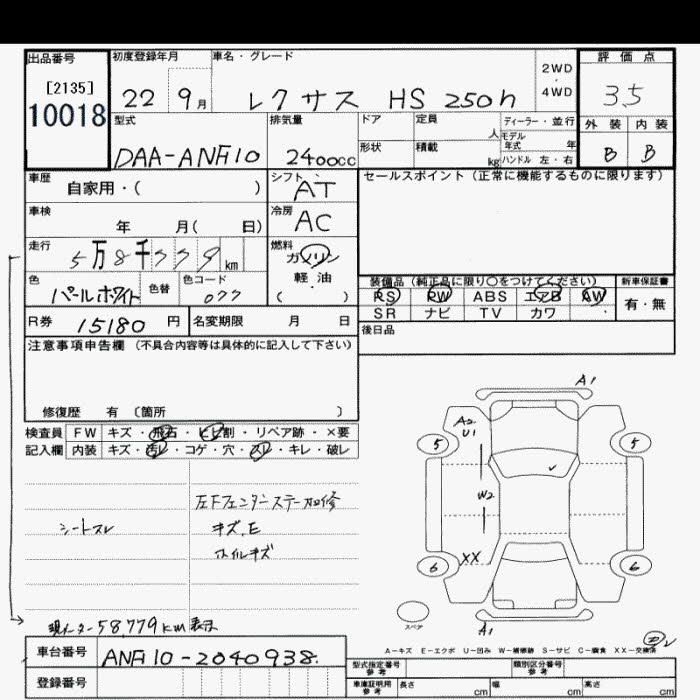 出品番号 初度登録年月 車名・グレード 2WD・4WD 評価点
[2135]
10018 22 9月 レクサス HS 250h 35
型式 排気量 ドア 定員 人 ディーラー・並行 外装 内装
モデル年式 年
DAA-ANF10 2400cc 形状 積載 kg ハンドル 左・右 B B
車歴 自家用・( ) シフト AT セールスポイント(正常に機能するものに限ります)
車検 年 月( 日) 冷房 AC
走行 5万8千779km 燃料 ガソリン
軽・油
( )
色 パールホワイト 色替 色コード 077
装備品(純正品に限り○をつけてください) 新車保証書
PS PW ABS エアB AW 有・無
SR ナビ TV カワ
R券 15180円 名変期限 月 日 後日品
注意事項申告欄(不具合内容等は具体的に記入して下さい)
修復歴 有〔箇所 〕
検査員 FW キズ・飛石・ヒビ割・リペア跡・×要
記入欄 内装 キズ・汚レ・コゲ・穴・スレ・キレ・破レ
左Fフェンダーステー加修
シートスレ キズ.E
ホイルキズ
現メーター58,779km表示
A1
A2
U1
5 5
W2
6 XX 6
スペア
A1
A-キズ E-エクボ U-凹み W-補修跡 S-サビ C-腐食 XX-交換済
車台番号 ANF10-2040938.
登録番号
型式指定番号 参考 類別区分番号 参考
車庫証明用 参考 長さ cm 幅 cm 高さ cm